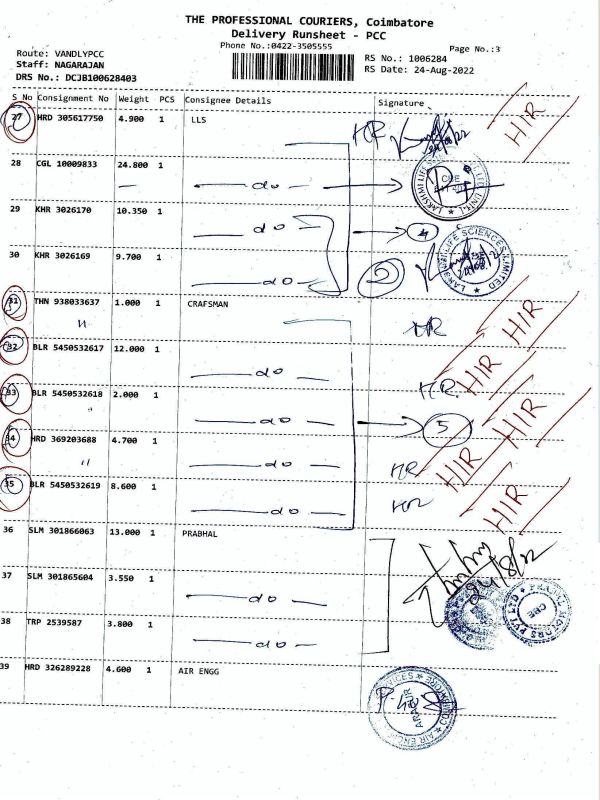 THE PROFESSIONAL COURIERS, Coimbatore
Delivery Runsheet - PCC
Phone No.:0422-3505555
Page No.:3
Route: VANDLYPCC
Staff: NAGARAJAN
DRS No.: DCJB100628403
RS No.: 1006284
RS Date: 24-Aug-2022
S No Consignment No Weight PCS Consignee Details Signature
27 HRD 305617750 4.900 1 LLS HR HIR
28 CGL 10009833 24.800 1
do
29 KHR 3026170 10.350 1
do 4
30 KHR 3026169 9.700 1
do 2
LIFE SCIENCES LIMITED
31 THN 938033637 1.000 1 CRAFSMAN
HR HIR
32 BLR 5450532617 12.000 1
do HR HIR
33 BLR 5450532618 2.000 1
do 5 HIR
34 HRD 369203688 4.700 1
do HR HIR
35 BLR 5450532619 8.600 1
do HR HIR
36 SLM 301866063 13.000 1 PRABHAL
24/8/2
37 SLM 301865604 3.550 1
do
CBE
38 TRP 2539587 3.800 1
do
39 HRD 326289228 4.600 1 AIR ENGG